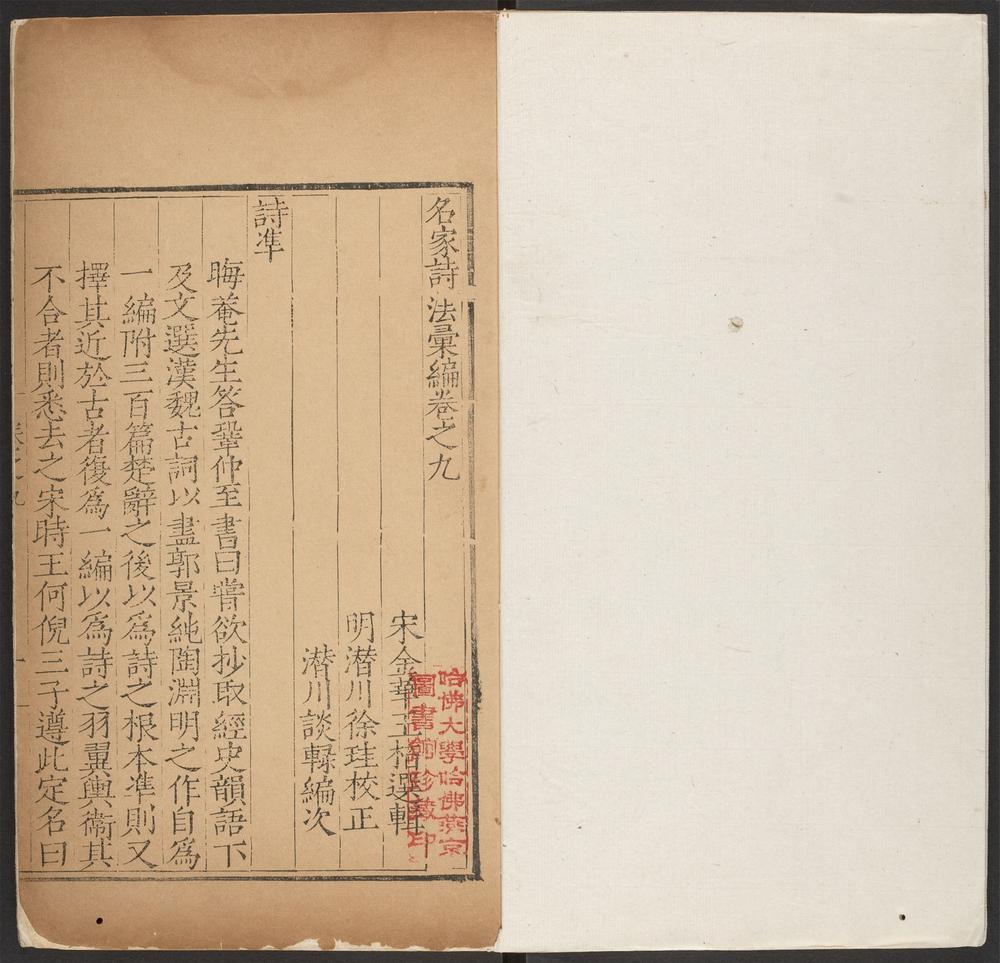 名家詩法彙編卷之九
宋金華王梧選輯
明潛川徐珪校正
潛川談輅編次
詩準
晦菴先生答鞏仲至書曰嘗欲抄取經史韻語下
及文選漢魏古詞以盡郭景純陶淵明之作自爲
一編附三百篇楚辭之後以爲詩之根本準則又
擇其近於古者復爲一編以爲詩之羽翼輿衛其
不合者則悉去之宋時王何倪三子遵此定名曰
哈佛大學哈佛燕京
圖書館珍藏印